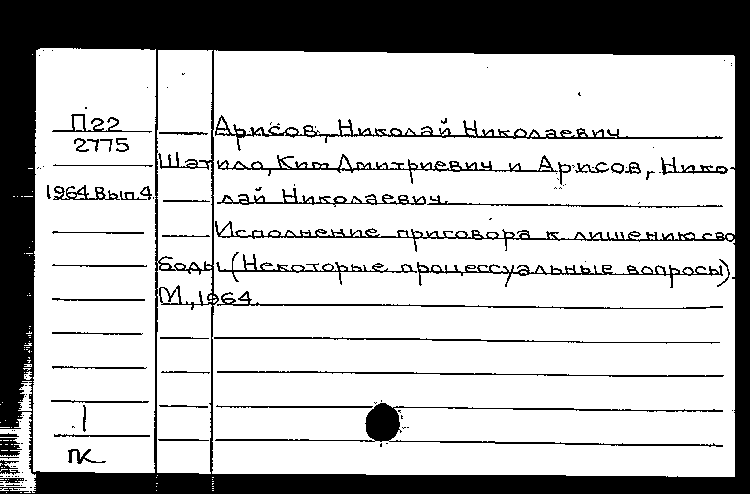 П22
2775
1964 Вып.4
Арисов, Николай Николаевич.
Шатило, Ким Дмитриевич и Арисов, Нико-
лай Николаевич.
Исполнение приговора к лишению сво
боды (Некоторые процессуальные вопросы).
М., 1964.
1
ПК